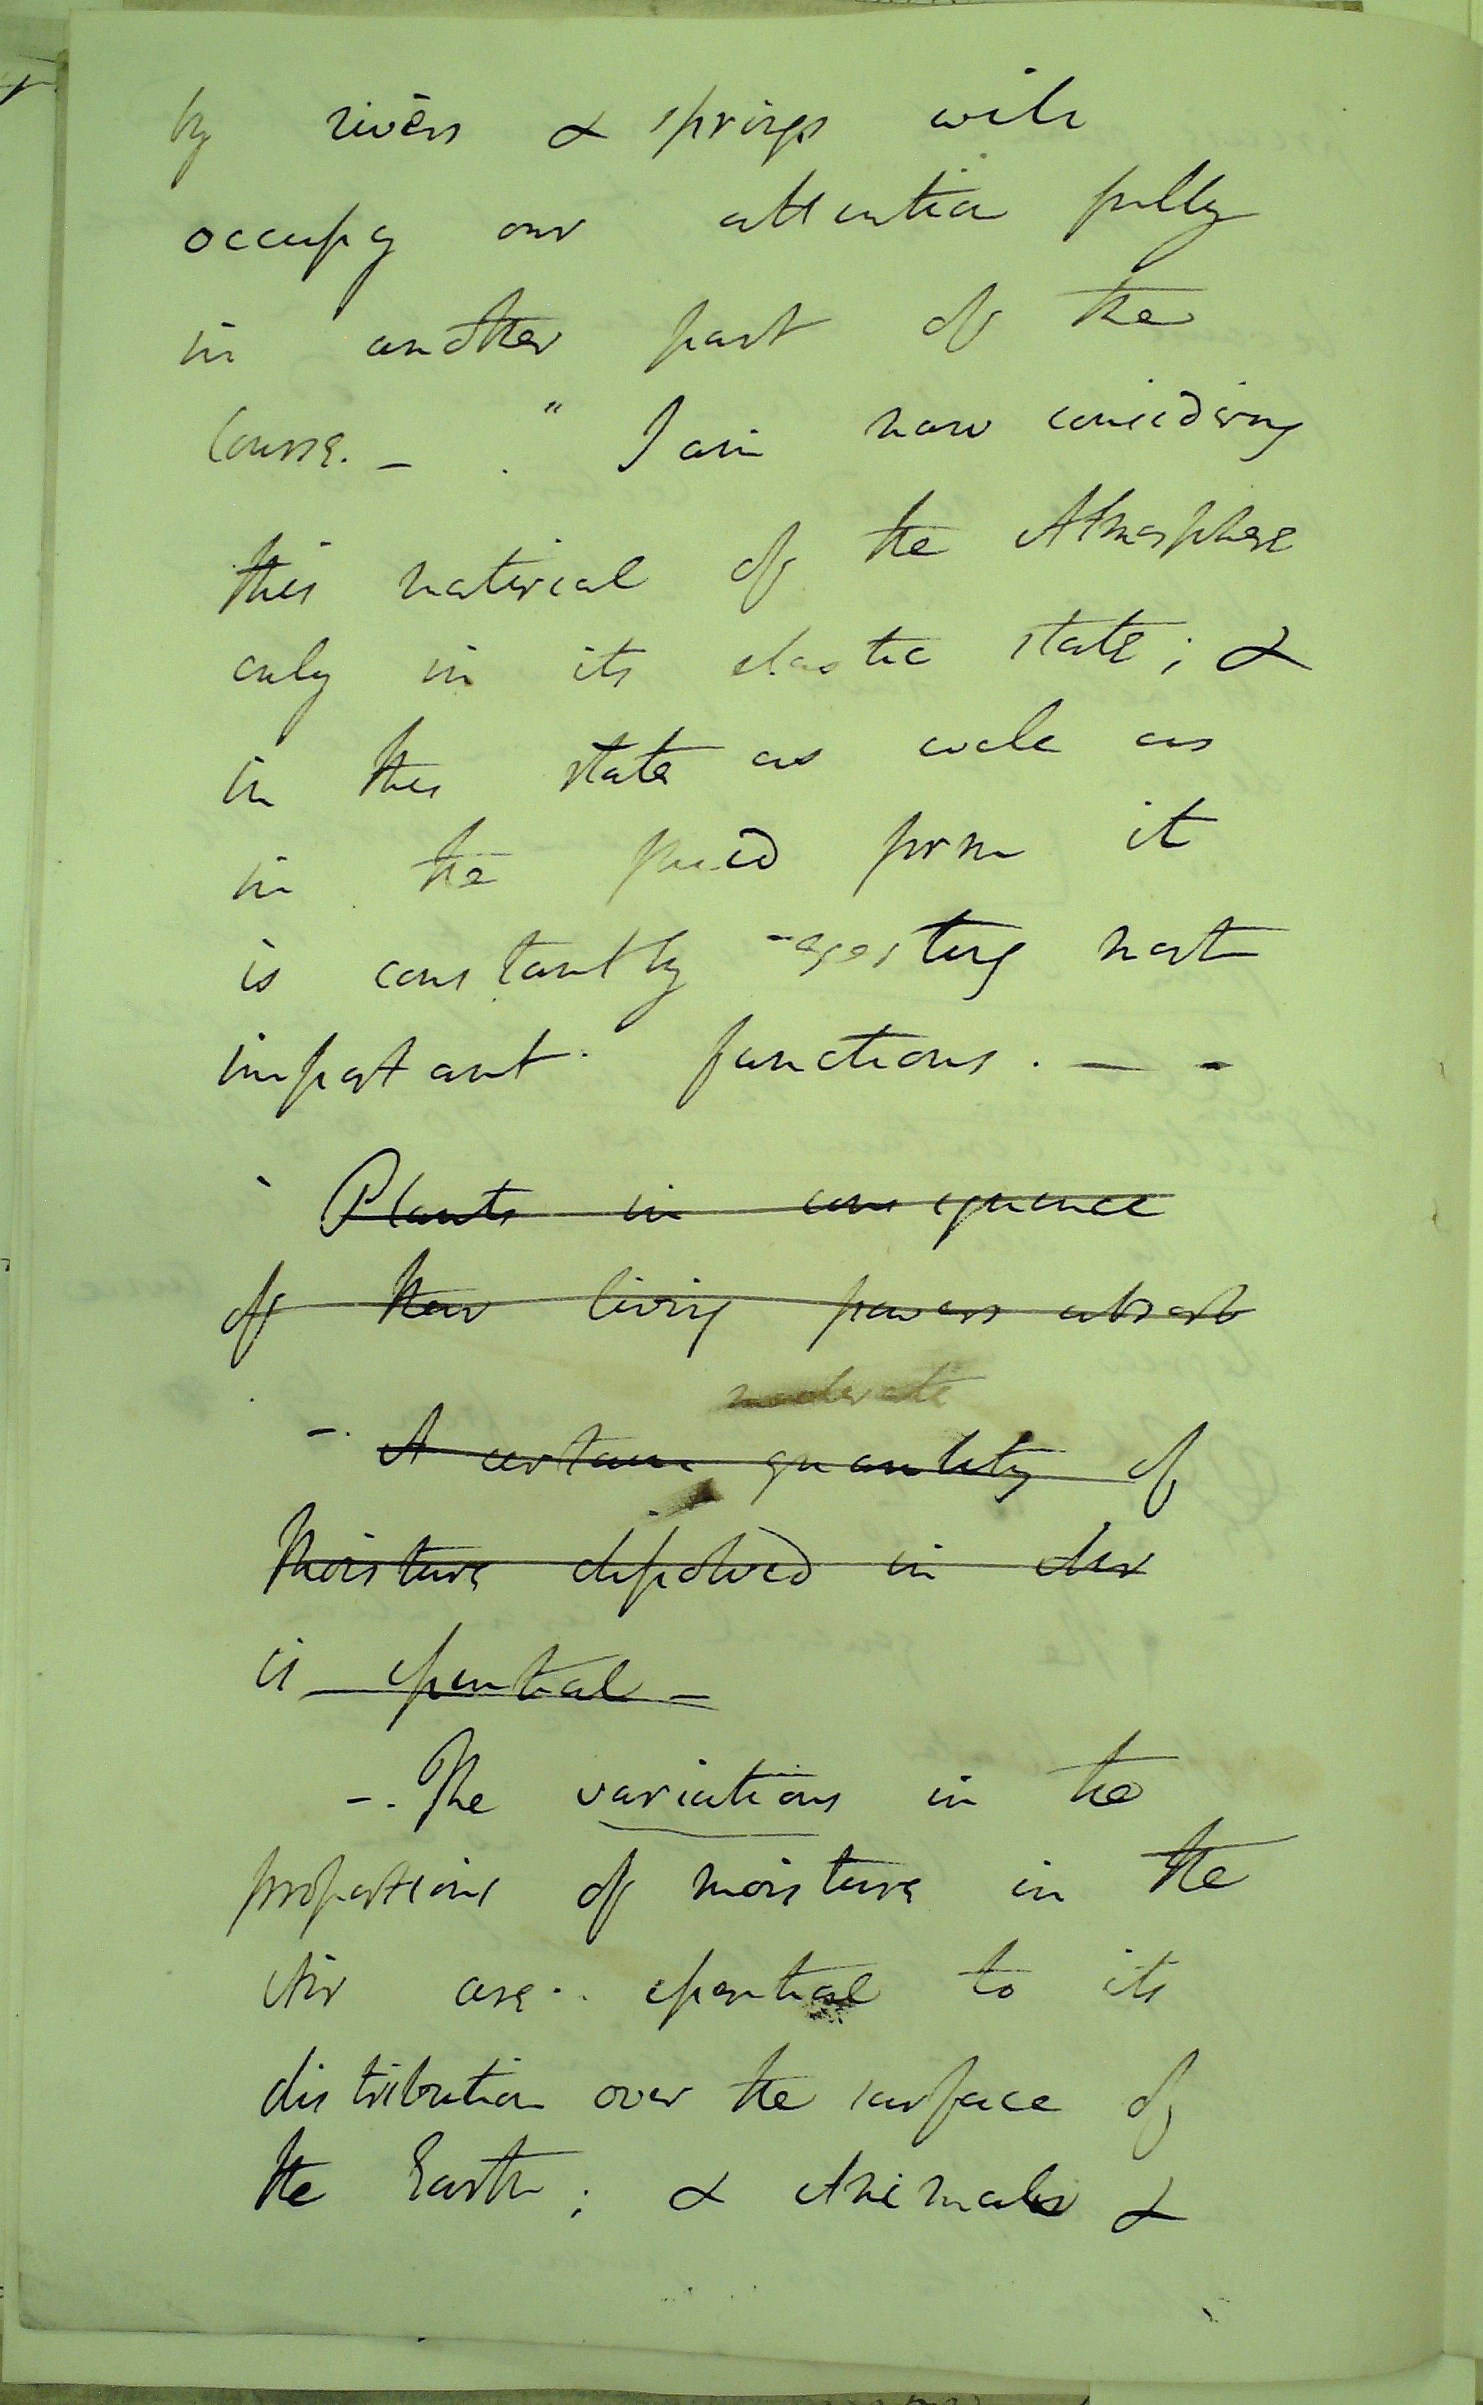 by rivers & springs will
occupy our attention fully
in another part of the
Course. – " I am now considering
this material of the Atmosphere
only in its elastic state; &
in this state as well as
in the fluid form it
is constantly most
important functions. — -
Plants in consequence
of their living powers absorb
moderate
- A certain quantity of
Moisture dissolved in Air
is essential –
-. The variations in the
proportions of moisture in the
Air are essential to its
distribution over the surface of
the Earth; & Animals &